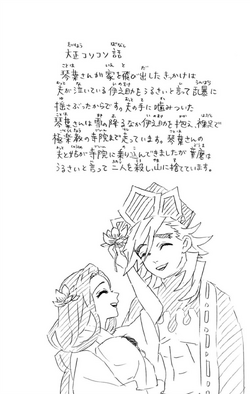 大正コソコソ話
琴葉さんが家を飛び出したきっかけは
夫が泣いている伊之助をうるさいと言って乱暴に
揺さぶったからです。夫の手に噛みついた
琴葉さんは雪の降るなか伊之助を抱え、裸足で
極楽教の寺院まで走っています。琴葉さんの
夫と姑が寺院に乗り込んできましたが童磨は
うるさいと言って二人を殺し、山に捨てています。